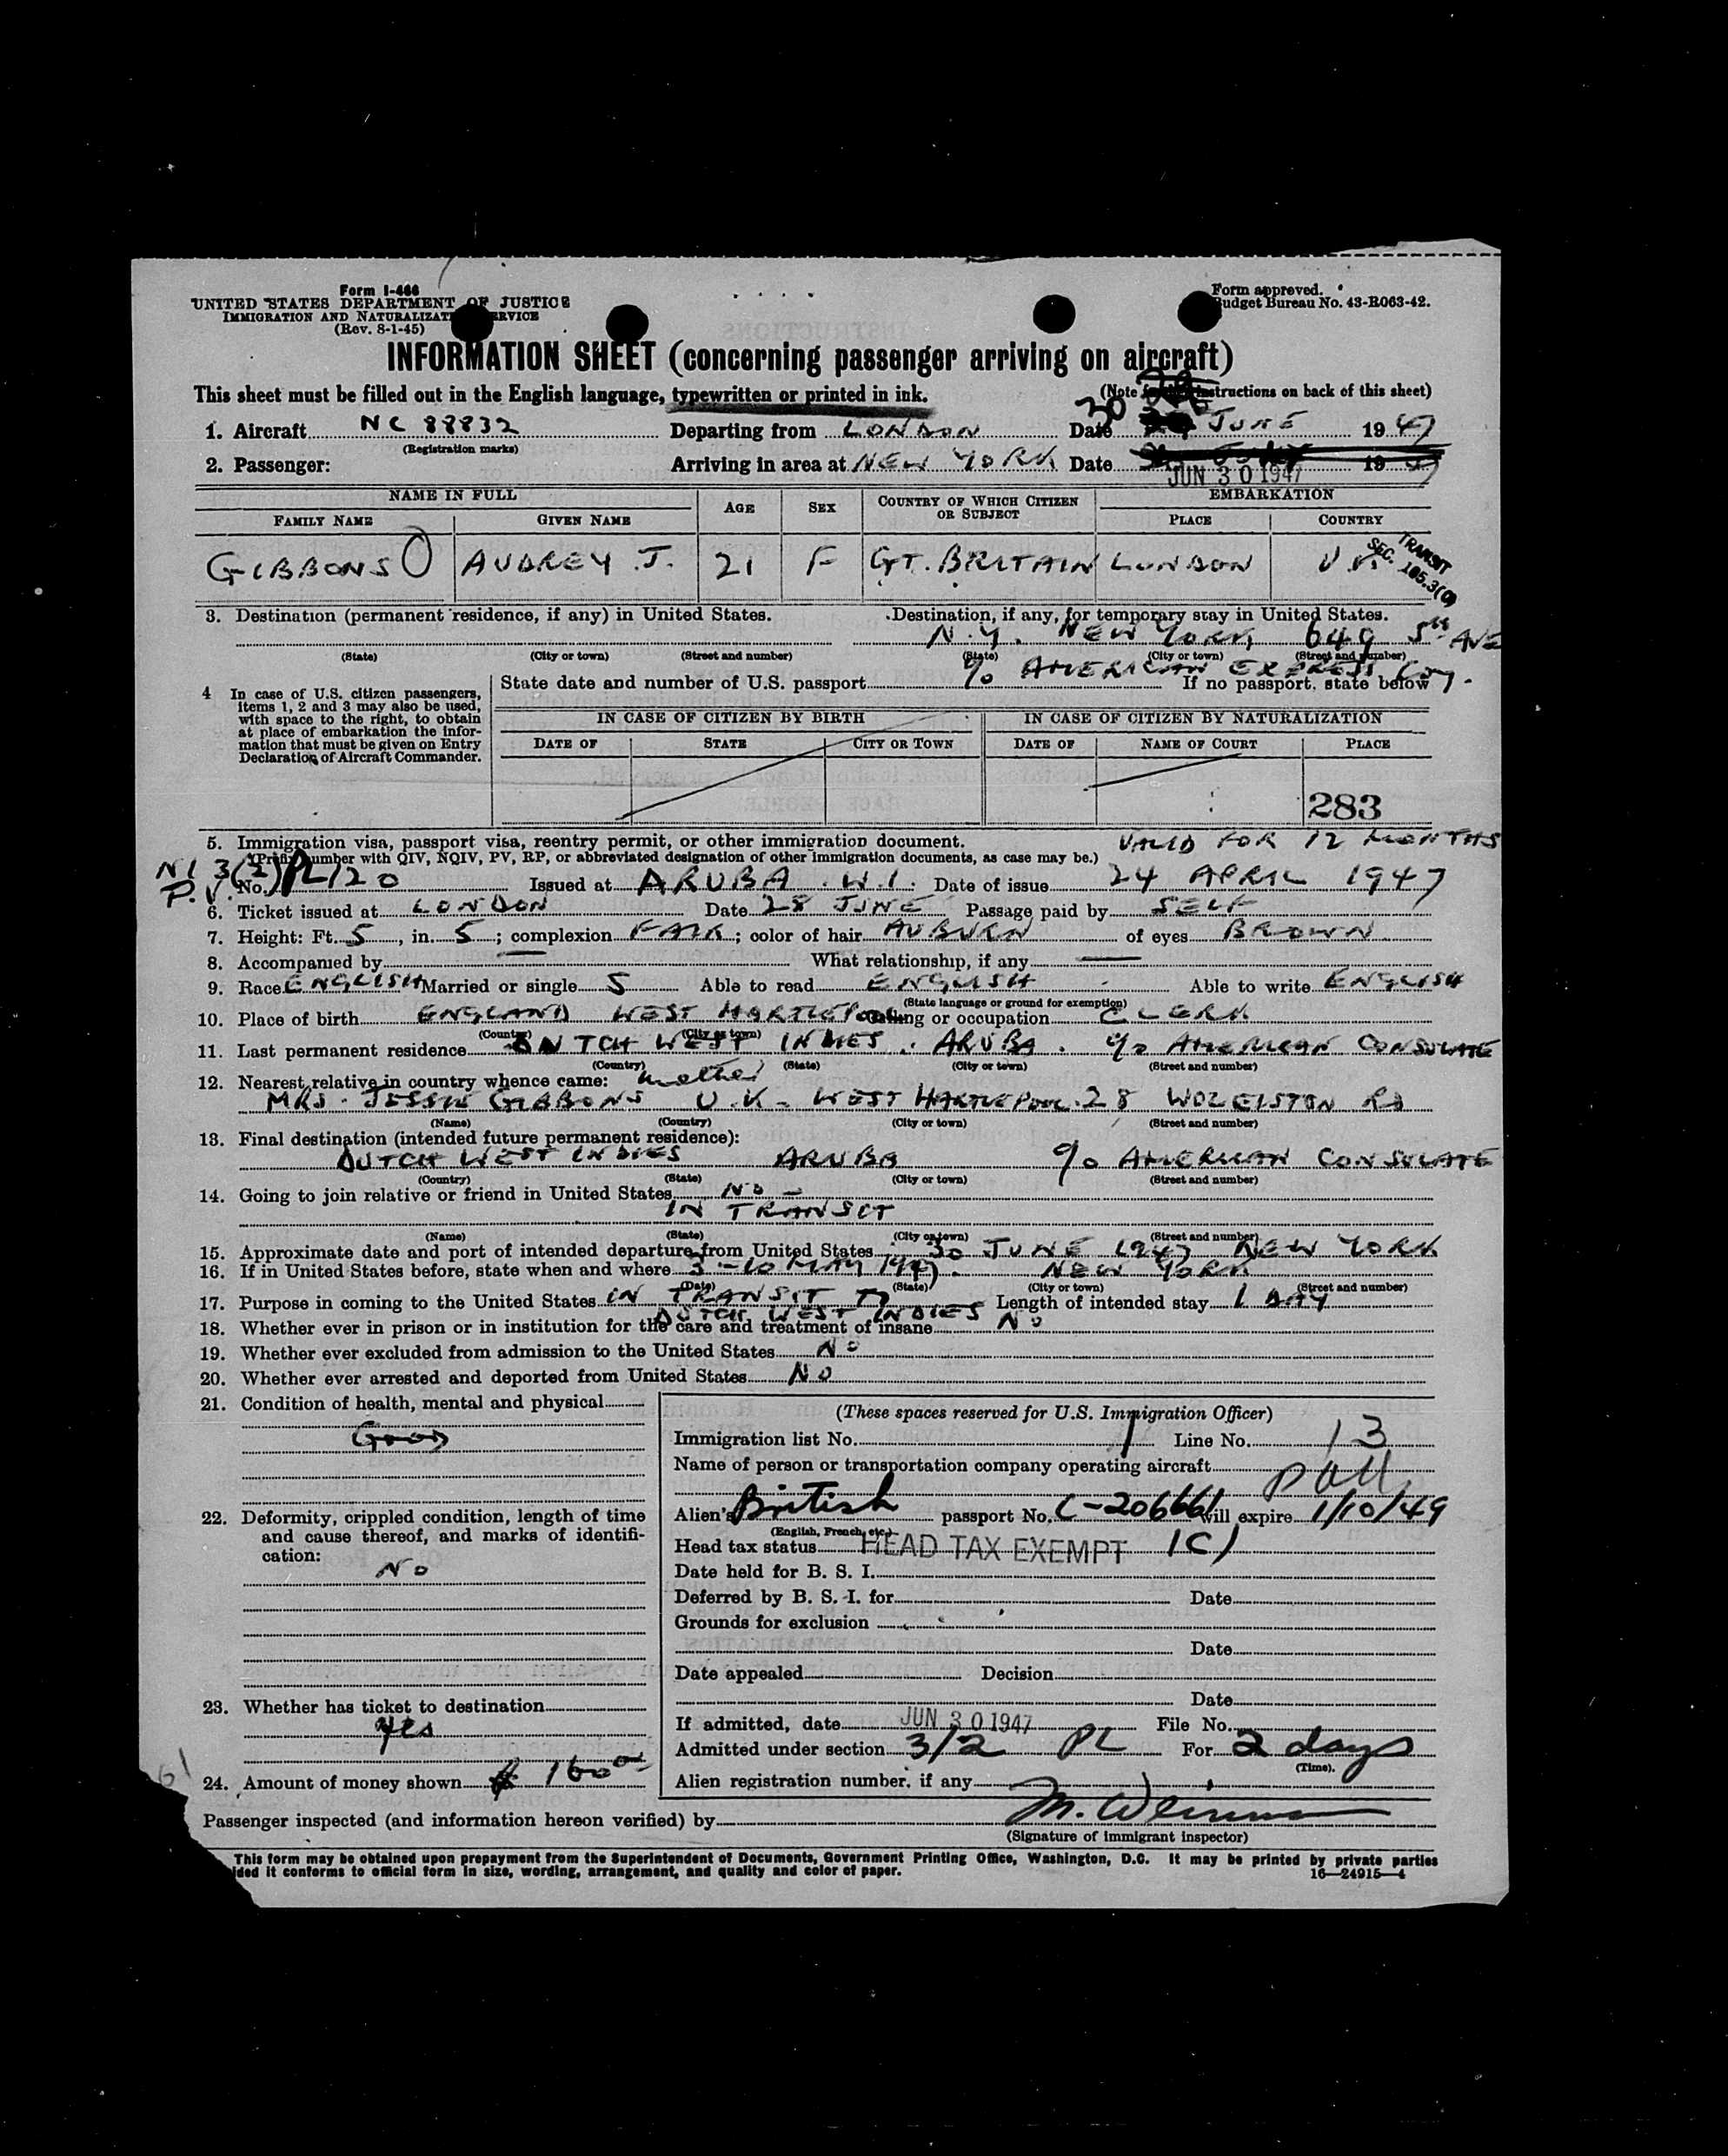 Form I-466
UNITED STATES DEPARTMENT OF JUSTICE
IMMIGRATION AND NATURALIZAT ERVICE
(Rev. 8-1-45)
Form approved.
Budget Bureau No. 43-R063-42.
INFORMATION SHEET (concerning passenger arriving on aircraft)
This sheet must be filled out in the English language, typewritten or printed in ink.
(Note instructions on back of this sheet)
1. Aircraft NC 88832 Departing from LONDON Date 30 JUNE 1947
(Registration marks)
2. Passenger: Arriving in area at NEW YORK Date JUN 30 1947 1947
NAME IN FULL AGE SEX COUNTRY OF WHICH CITIZEN OR SUBJECT EMBARKATION
FAMILY NAME GIVEN NAME PLACE COUNTRY
GIBBONS AUDREY J. 21 F GT. BRITAIN LONDON U.K.
TRANSIT
SEC. 105.3(C)
3. Destination (permanent residence, if any) in United States. Destination, if any, for temporary stay in United States.
N.Y. NEW YORK 649 5TH AVE
(State) (City or town) (Street and number) (State) (City or town) (Street and number)
c/o AMERICAN EXPRESS Coy.
4 In case of U.S. citizen passengers, items 1, 2 and 3 may also be used, with space to the right, to obtain at place of embarkation the information that must be given on Entry Declaration of Aircraft Commander.
State date and number of U.S. passport If no passport, state below
IN CASE OF CITIZEN BY BIRTH IN CASE OF CITIZEN BY NATURALIZATION
DATE OF STATE CITY OR TOWN DATE OF NAME OF COURT PLACE
283
5. Immigration visa, passport visa, reentry permit, or other immigration document. VALID FOR 12 MONTHS
(Prefix number with QIV, NQIV, PV, RP, or abbreviated designation of other immigration documents, as case may be.)
NI 3(2) PL
P.V. No. 120 Issued at ARUBA . W.I. Date of issue 24 APRIL 1947
6. Ticket issued at LONDON Date 28 JUNE Passage paid by SELF
7. Height: Ft. 5, in. 5; complexion FAIR; color of hair AUBURN of eyes BROWN
8. Accompanied by — What relationship, if any —
9. Race ENGLISH Married or single S Able to read ENGLISH Able to write ENGLISH
(State language or ground for exemption)
10. Place of birth ENGLAND WEST HARTLEPOOL Calling or occupation CLERK
(Country) (City or town)
11. Last permanent residence DUTCH WEST INDIES . ARUBA . c/o AMERICAN CONSULATE
(Country) (State) (City or town) (Street and number)
12. Nearest relative in country whence came: mother
MRS. JESSIE GIBBONS U.K. WEST HARTLEPOOL. 28 WOLEISTON RD
(Name) (Country) (City or town) (Street and number)
13. Final destination (intended future permanent residence):
DUTCH WEST INDIES ARUBA c/o AMERICAN CONSULATE
(Country) (State) (City or town) (Street and number)
14. Going to join relative or friend in United States NO —
IN TRANSIT
(Name) (State) (City or town) (Street and number)
15. Approximate date and port of intended departure from United States 30 JUNE 1947 NEW YORK
16. If in United States before, state when and where 3-10 MAY 1947. NEW YORK
(Date) (State) (City or town) (Street and number)
17. Purpose in coming to the United States IN TRANSIT TO Length of intended stay 1 DAY
DUTCH WEST INDIES
18. Whether ever in prison or in institution for the care and treatment of insane NO
19. Whether ever excluded from admission to the United States NO
20. Whether ever arrested and deported from United States NO
21. Condition of health, mental and physical
GOOD
22. Deformity, crippled condition, length of time and cause thereof, and marks of identification:
NO
23. Whether has ticket to destination
yes
24. Amount of money shown $ 160.00
(These spaces reserved for U.S. Immigration Officer)
Immigration list No. 1 Line No. 13
Name of person or transportation company operating aircraft
Alien's British passport No. C-206661 will expire 1/10/49
(English, French, etc.)
Head tax status HEAD TAX EXEMPT 1(C)
Date held for B. S. I.
Deferred by B. S. I. for Date
Grounds for exclusion
Date
Date appealed Decision
Date
If admitted, date JUN 30 1947 File No.
Admitted under section 3/2 PL For 2 days
(Time).
Alien registration number, if any
Passenger inspected (and information hereon verified) by
(Signature of immigrant inspector)
This form may be obtained upon prepayment from the Superintendent of Documents, Government Printing Office, Washington, D.C. It may be printed by private parties
ided it conforms to official form in size, wording, arrangement, and quality and color of paper.
16—24915—4